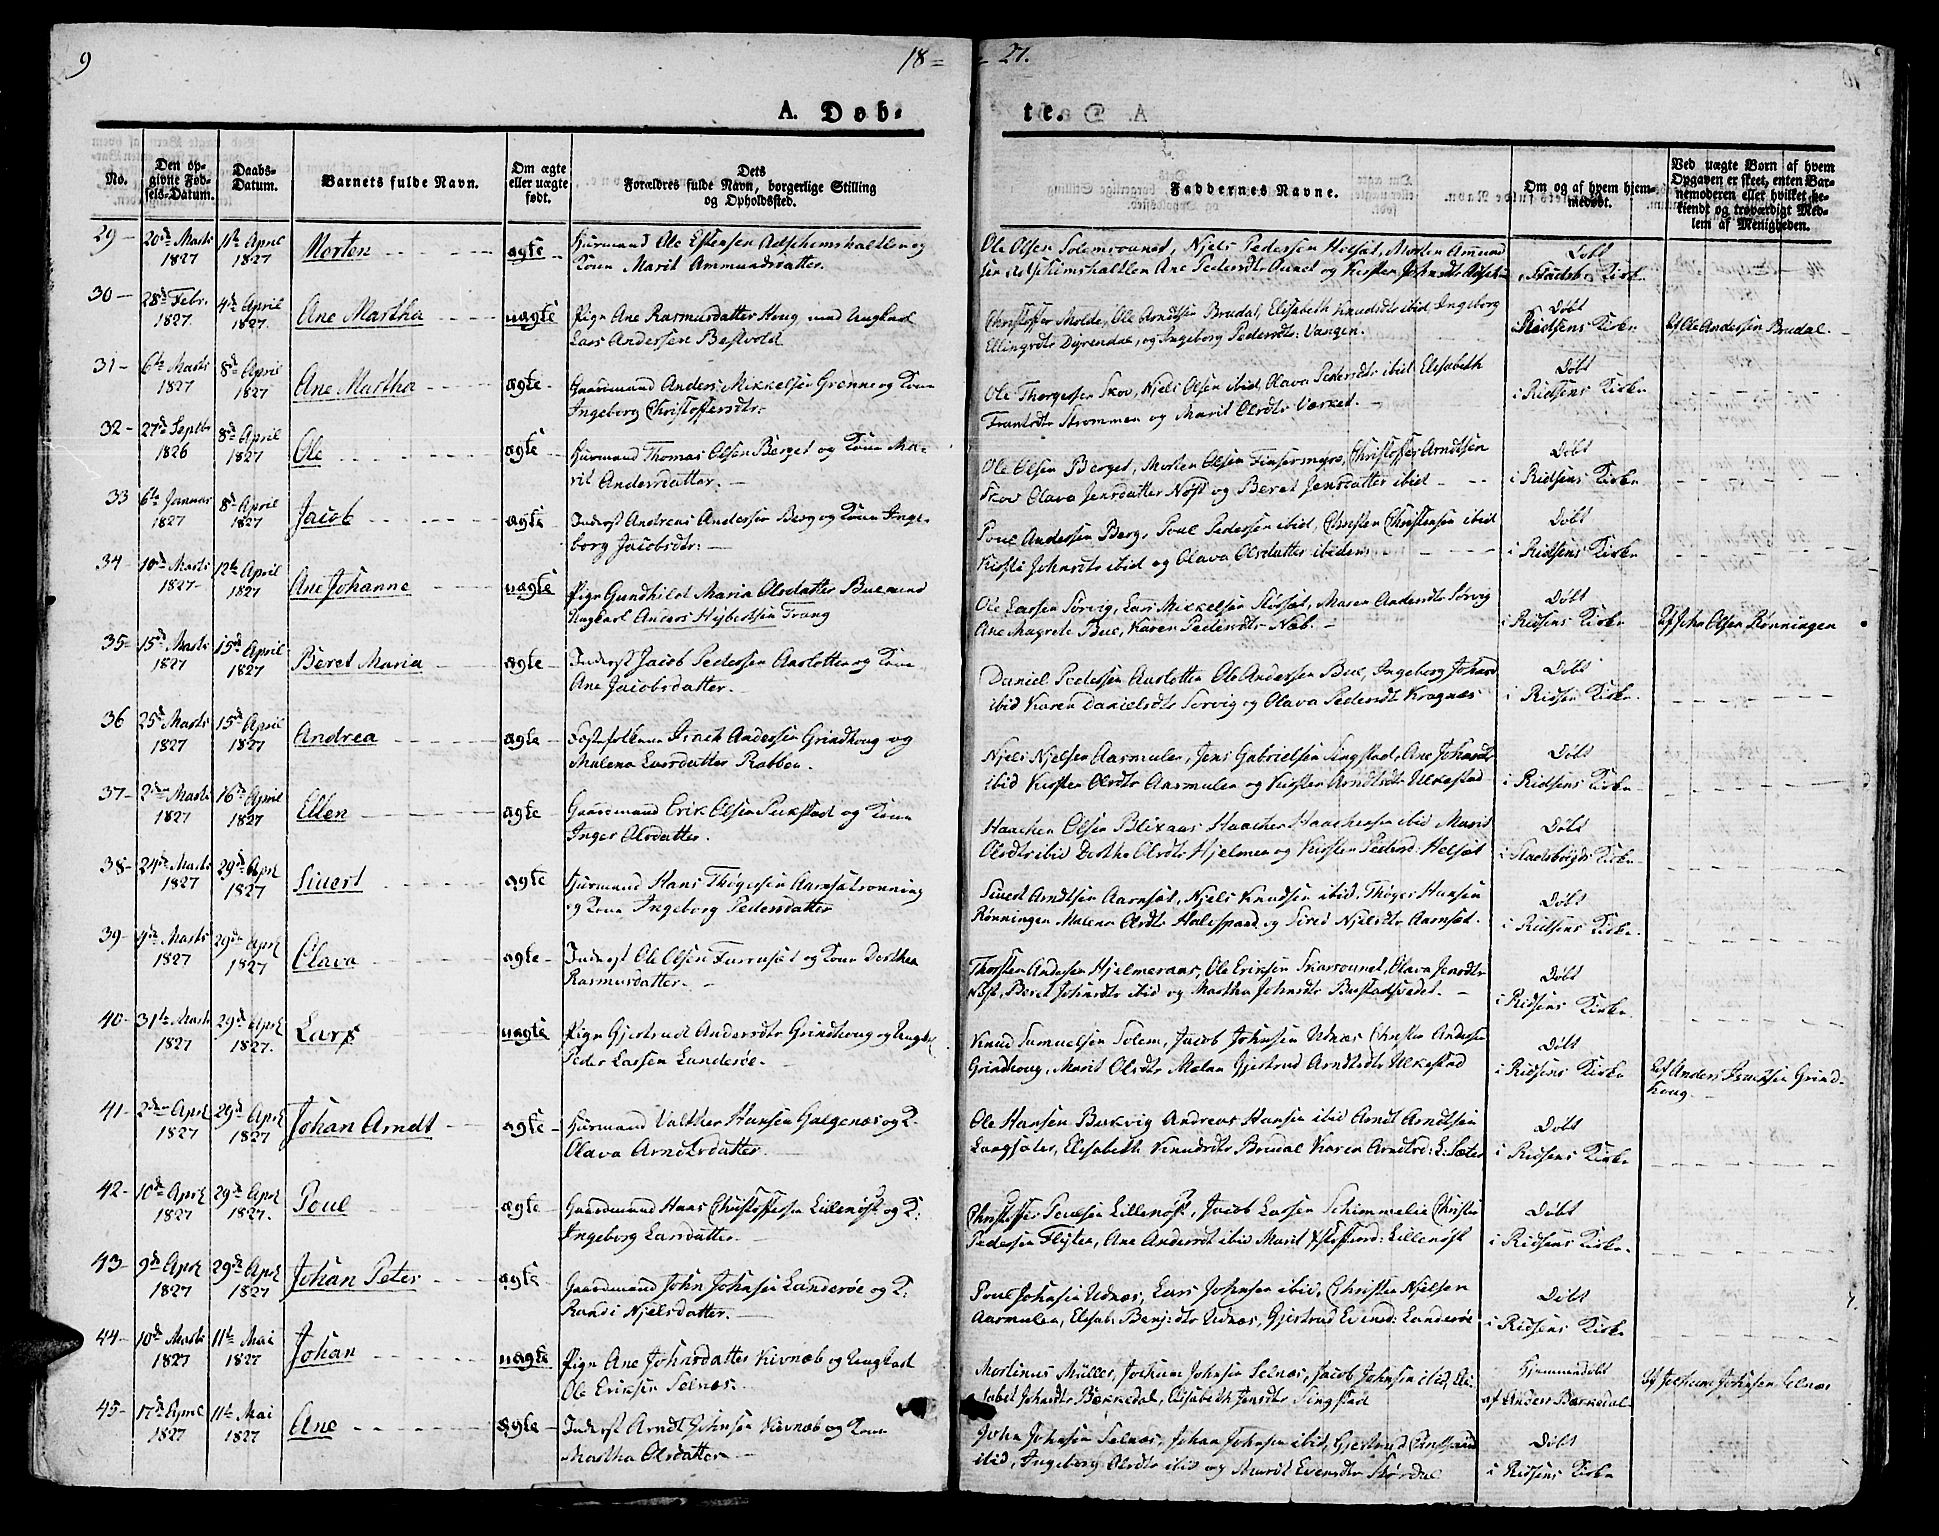 9
18 = = 27.
A. Døb- te.
No. | Den opgivne Fødsels-Datum. | Daabs-Datum. | Barnets fulde Navn. | Om ægte eller uægte født. | Dets Forældres fulde Navn, borgerlige Stilling og Opholdssted. | Faddernes Navne. | Om og af hvem hjemmedøbt. | Ved uægte Børn af hvem Opgaven er skeet, enten Barnemoderen eller hvilket bekiendt og troværdigt Medlem af Menigheden.
29- 20de Marts 1827 11te April 1827 Morten ægte
Huusmand Ole Estensen og
Kone Marit Ammundsdatter.
Ole Olsen Solemsouned, Njels Pedersen Helsæt, Morten Ammund
sen Ane Pedersdtr Aunet og Kirsten Johnsdtr
Døbt
i Stadsb. Kirke
30- 28de Febr. 1827. 4de April 1827. Ane Martha uægte
Pige Ane Rasmusdatter Houg med Ungkarl
Lars Andersen Bestvold
Christoffer Molde, Ole Arndtsen Brudal, Elisabeth Knudsdtr ibid Ingeborg
Ellingsdtr Dyrendal, og Ingeborg Pedersdtr: Vangen.
Døbt
i Ridsens Kirke
af Ole Andersen Brudal.
31- 6te Marts 1827 8de April 1827 Ane Martha ægte
Gaardmand Anders Mikkelsen Grønne og Kone
Ingeborg Christoffersdtr:
Ole Thorgersen Skov, Njels Olsen ibid, Olava Pedersdtr ibid Elisabeth
Frantsdtr Strømmen og Marit Olsdtr Værket.
Døbt
i Ridsens Kirke
32- 27de Septbr 1826 8de April 1827 Ole ægte
Huusmand Thomas Olsen Berget og Kone Ma-
rit Andersdatter.
Ole Olsen Berget, Morten Olsen Finsermyre, Christoffer Arndtsen
Skov Olava Jensdatter Nøst og Beret Jensdatter ibid
Døbt
i Ridsens Kirke
33 6te Januar 1827 8de April 1827 Jacob ægte
Inderst Andreas Andersen Berg og Kone Inge-
borg Jacobsdtr:
Poul Andersen Berg, Poul Pedersen ibid, Christen Christensen ibid
Kirsti Johnsdtr ibid og Olava Olsdatter ibidem
Døbt
i Ridsens Kirke
34 10de Marts 1827- 12te April 1827 Ane Johanne uægte
Pige Gundhild Maria Olsdatter Bue med
Ungkarl Anders Hejbertsen Trang
Ole Larsen Sørvig, Lars Mikkelsen Størset, Maren Andersdtr Sørvig
Ane Magrete Bue, Karen Pedersdtr Næb.
Døbt
i Ridsens Kirke
af John Olsen Rønningen
35- 15de Marts 1827 15de April 1827 Beret Maria ægte
Inderst Jacob Pedersen Aarlotten og Kone
Ane Jacobsdatter.
Daniel Pedersen Aarlotten Ole Andersen Bue, Ingeborg Johnsd
ibid Karen Danielsdtr Sørvig og Olava Pedersdtr Kragnæs
Døbt
i Ridsen Kirke
36 25de Marts 1827 15de April 1827 Andrea ægte
Isach Andersen Grindhoug og
Malena Larsdatter Rabben.
Njels Njelsen Aarmulen, Jens Gabrielsen Singstad, Ane Johnsdtr
ibid Kirsten Olsdtr Aarmulen og Kirsten Arndtsdtr Ulkestad
Døbt
i Ridsens Kirke
37- 2den Marts 1827 16de April 1827 Ellen ægte
Gaardmand Erik Olsen Pukstad og Kone
Inger Olsdatter.
Haachen Olsen Blixaas Haachen Haachensen ibid Marit
Olsdtr ibid Dorthe Olsdtr Hjelmen og Kirsten Pedersd: Helsæt
Døbt
i Stadsbøigds Kirke
38- 24de Marts 1827 29de Apr. 1827 Siuert ægte
Huusmand Hans Thøgersen Aarnsætrønning
og Kone Ingeborg Pedersdatter
Siuert Arndtsen Aarnsæt, Njels Knudsen ibid, Thøger Hansen
Rønningen Malena Olsdtr og Sired Njelsdtr Aarnsæt.
Døbt
i Ridsens Kirke
39- 4de Marts 1827 29de Apr. 1827 Olava ægte
Inderst Ole Olsen Furrusæt og Kone Dorthea
Rasmusdatter.
Thorsten Andersen Hjelmeraas, Ole Eriksen Skarsounet, Olava Jensdtr
Nøst, Beret Johnsdtr ibid og Martha Johnsdtr Bustadsvedet.
Døbt
i Ridsens Kirke
40- 31te Marts 1827 29de Apr. 1827. Lars uægte
Pige Gjertrud Andersdtr Grindhoug og Ungk.
Peder Larsen Landerøe.
Knud Samuelsen Solem, Jacob Johnsen Udnæs Christen Andersen
Grindhoug, Marit Olsdtr Melan Gjertrud Arndtsdtr Ulkestad
Døbt
i Ridsens Kirke
af Anders Isachsen Grind-
houg
41- 2den Apr. 1827 29de Apr. 1827 Johan Arndt ægte
Huusmand Valther Hansen Galgenæs og K.
Olava Arndtsdatter.
Ole Hansen Bukvig Andreas Hansen ibid Arndt Arndtsen
Langsæter, Elisabeth Knudsdtr Brudal Karen Arndtsd: L:Sæter
Døbt
i Ridsens Kirke
42- 10de Apr. 1827 29de Apr. 1827. Poul ægte
Gaardmand Hans Christoffersen Lillenøst og K:
Ingeborg Larsdatter.
Christoffer Poulsen Lillenøst, Jacob Larsen Schimmelie Christen
Pedersen Flyten, Ane Andersdt ibid Marit Lillenøst
Døbt
i Ridsens Kirke
43- 9de Apr. 1827 29de Apr. 1827 Johan Peter ægte
Gaardmand John Johnsen Landerøe og K:
Randi Njelsdatter.
Poul Johnsen Udnæs, Lars Johnsen ibid, Christen Njelsen
Aarmulen, Elisab: Benj:dtr Udnæs, Gjertrud Evensd: Landerøe
Døbt
i Ridsens Kirke
44- 10de Marts 1827 11te Mai 1827 Johan uægte
Pige Ane Johnsdatter Kivnæb og Ungkarl
Ole Eriksen Selnæs.
Mortinus Müller, Jochum Johnsen Selnæs, Jacob Johnsen ibid, Eli-
sabet Johnsdtr Bækkedal, Elisabeth Jonsdtr Singstad
Hjemmedøbt
af Anders Bækkedal
af Jochum Johnsen Selnæs
45- 17de April 1827 11te Mai 1827 Ane ægte
Inderst Arndt Johnsen Kivnæb og Kone
Martha Olsdatter
John Johnsen Selnæs, Johan Johnsen ibid, Gjertrud
ibid, Ingeborg Olsdtr ibid og Marit Evensdtr Størdal
Døbt
i Ridsens Kirke